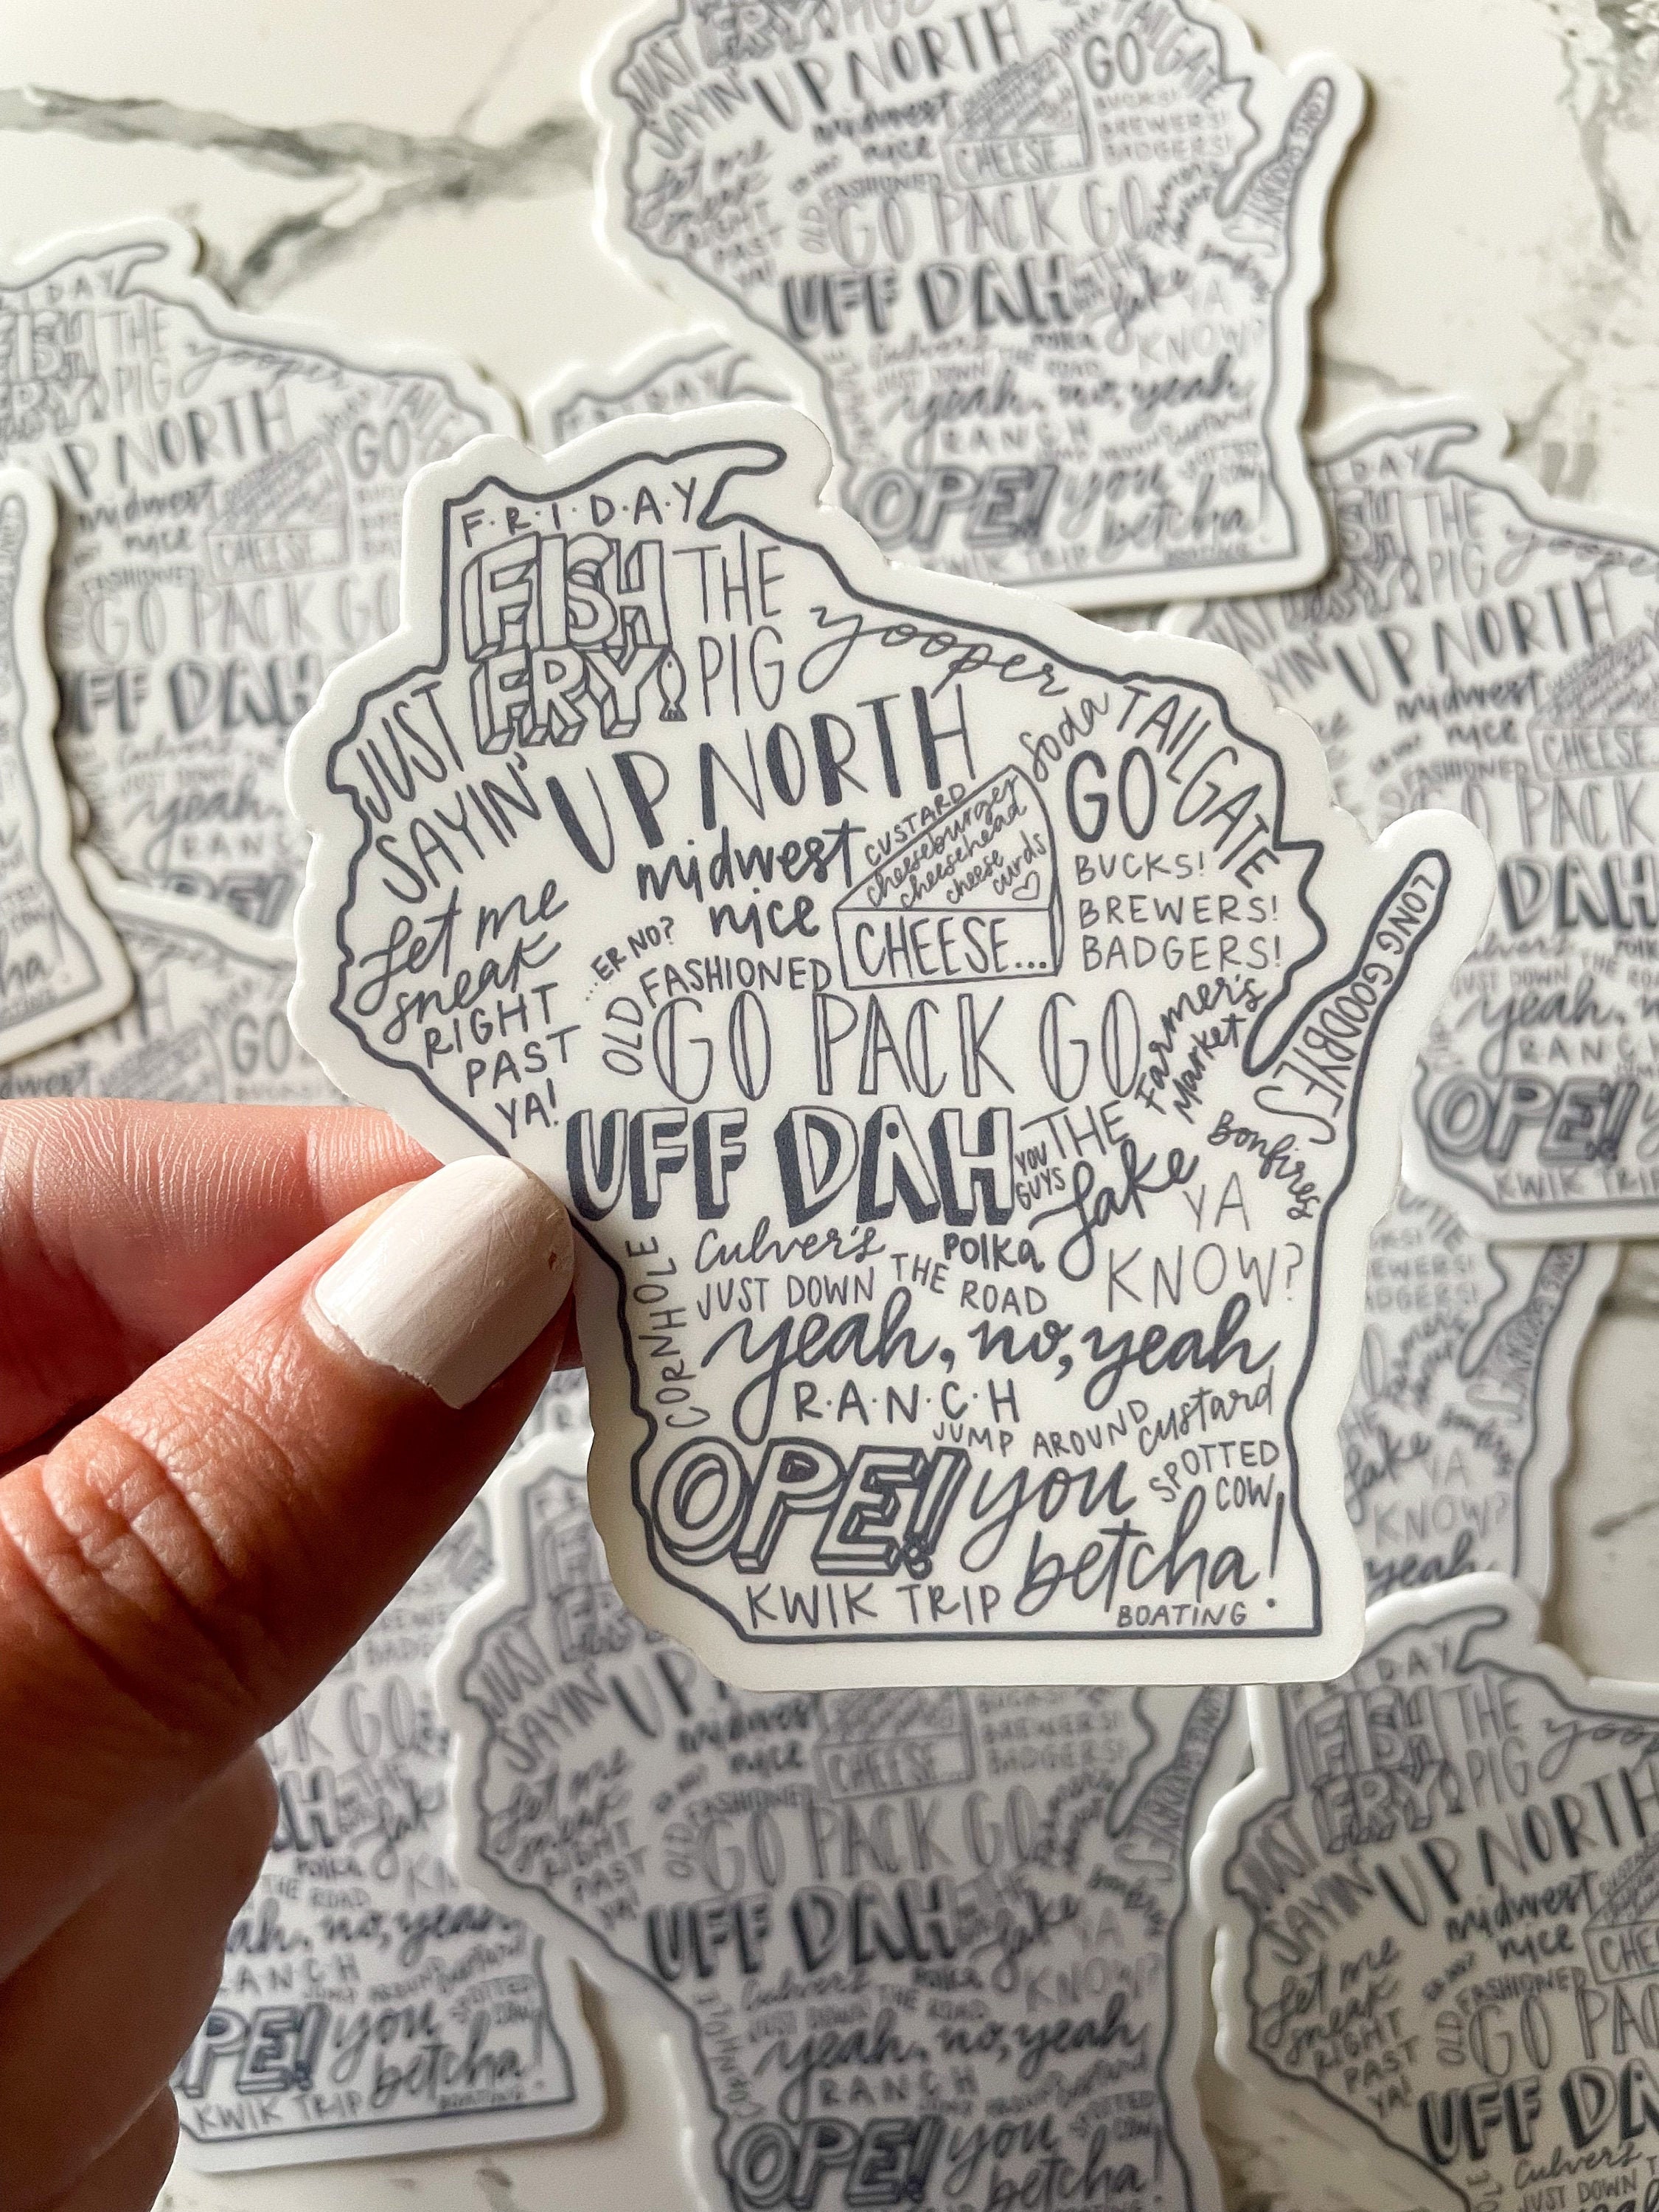 F·R·I·D·A·Y
FISH
FRY
THE
PIG
yooper
JUST
SAYIN'
UP NORTH
soda
TAILGATE
midwest
nice
...ER NO?
CUSTARD
cheeseburger
cheesehead
cheese
curds
CHEESE...
GO
BUCKS!
BREWERS!
BADGERS!
let me
sneak
RIGHT
PAST
YA!
OLD FASHIONED
GO PACK GO
Farmer's
Market
LONG GOODBYES
UFF DAH
YOU
GUYS
THE
lake
Bonfires
YA
KNOW?
CORNHOLE
Culver's
POLKA
JUST DOWN THE ROAD
yeah, no, yeah
R·A·N·C·H
JUMP AROUND
custard
SPOTTED
COW
OPE!
you
betcha!
KWIK TRIP
BOATING